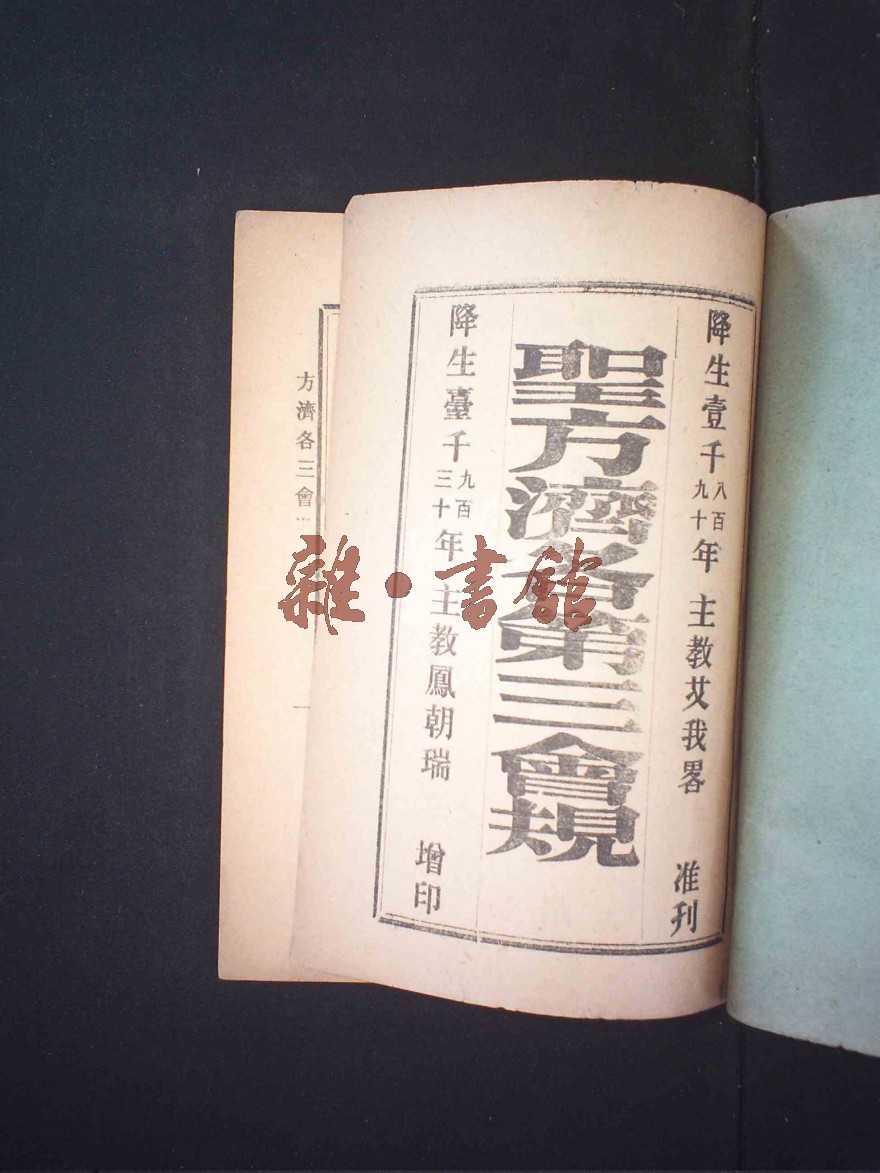 降生壹千八百九十年 主教艾我畧 准刊
聖方濟各第三會規
降生臺千九百三十年 主教鳳朝瑞 增印
方濟各三會…
一
雜·書館